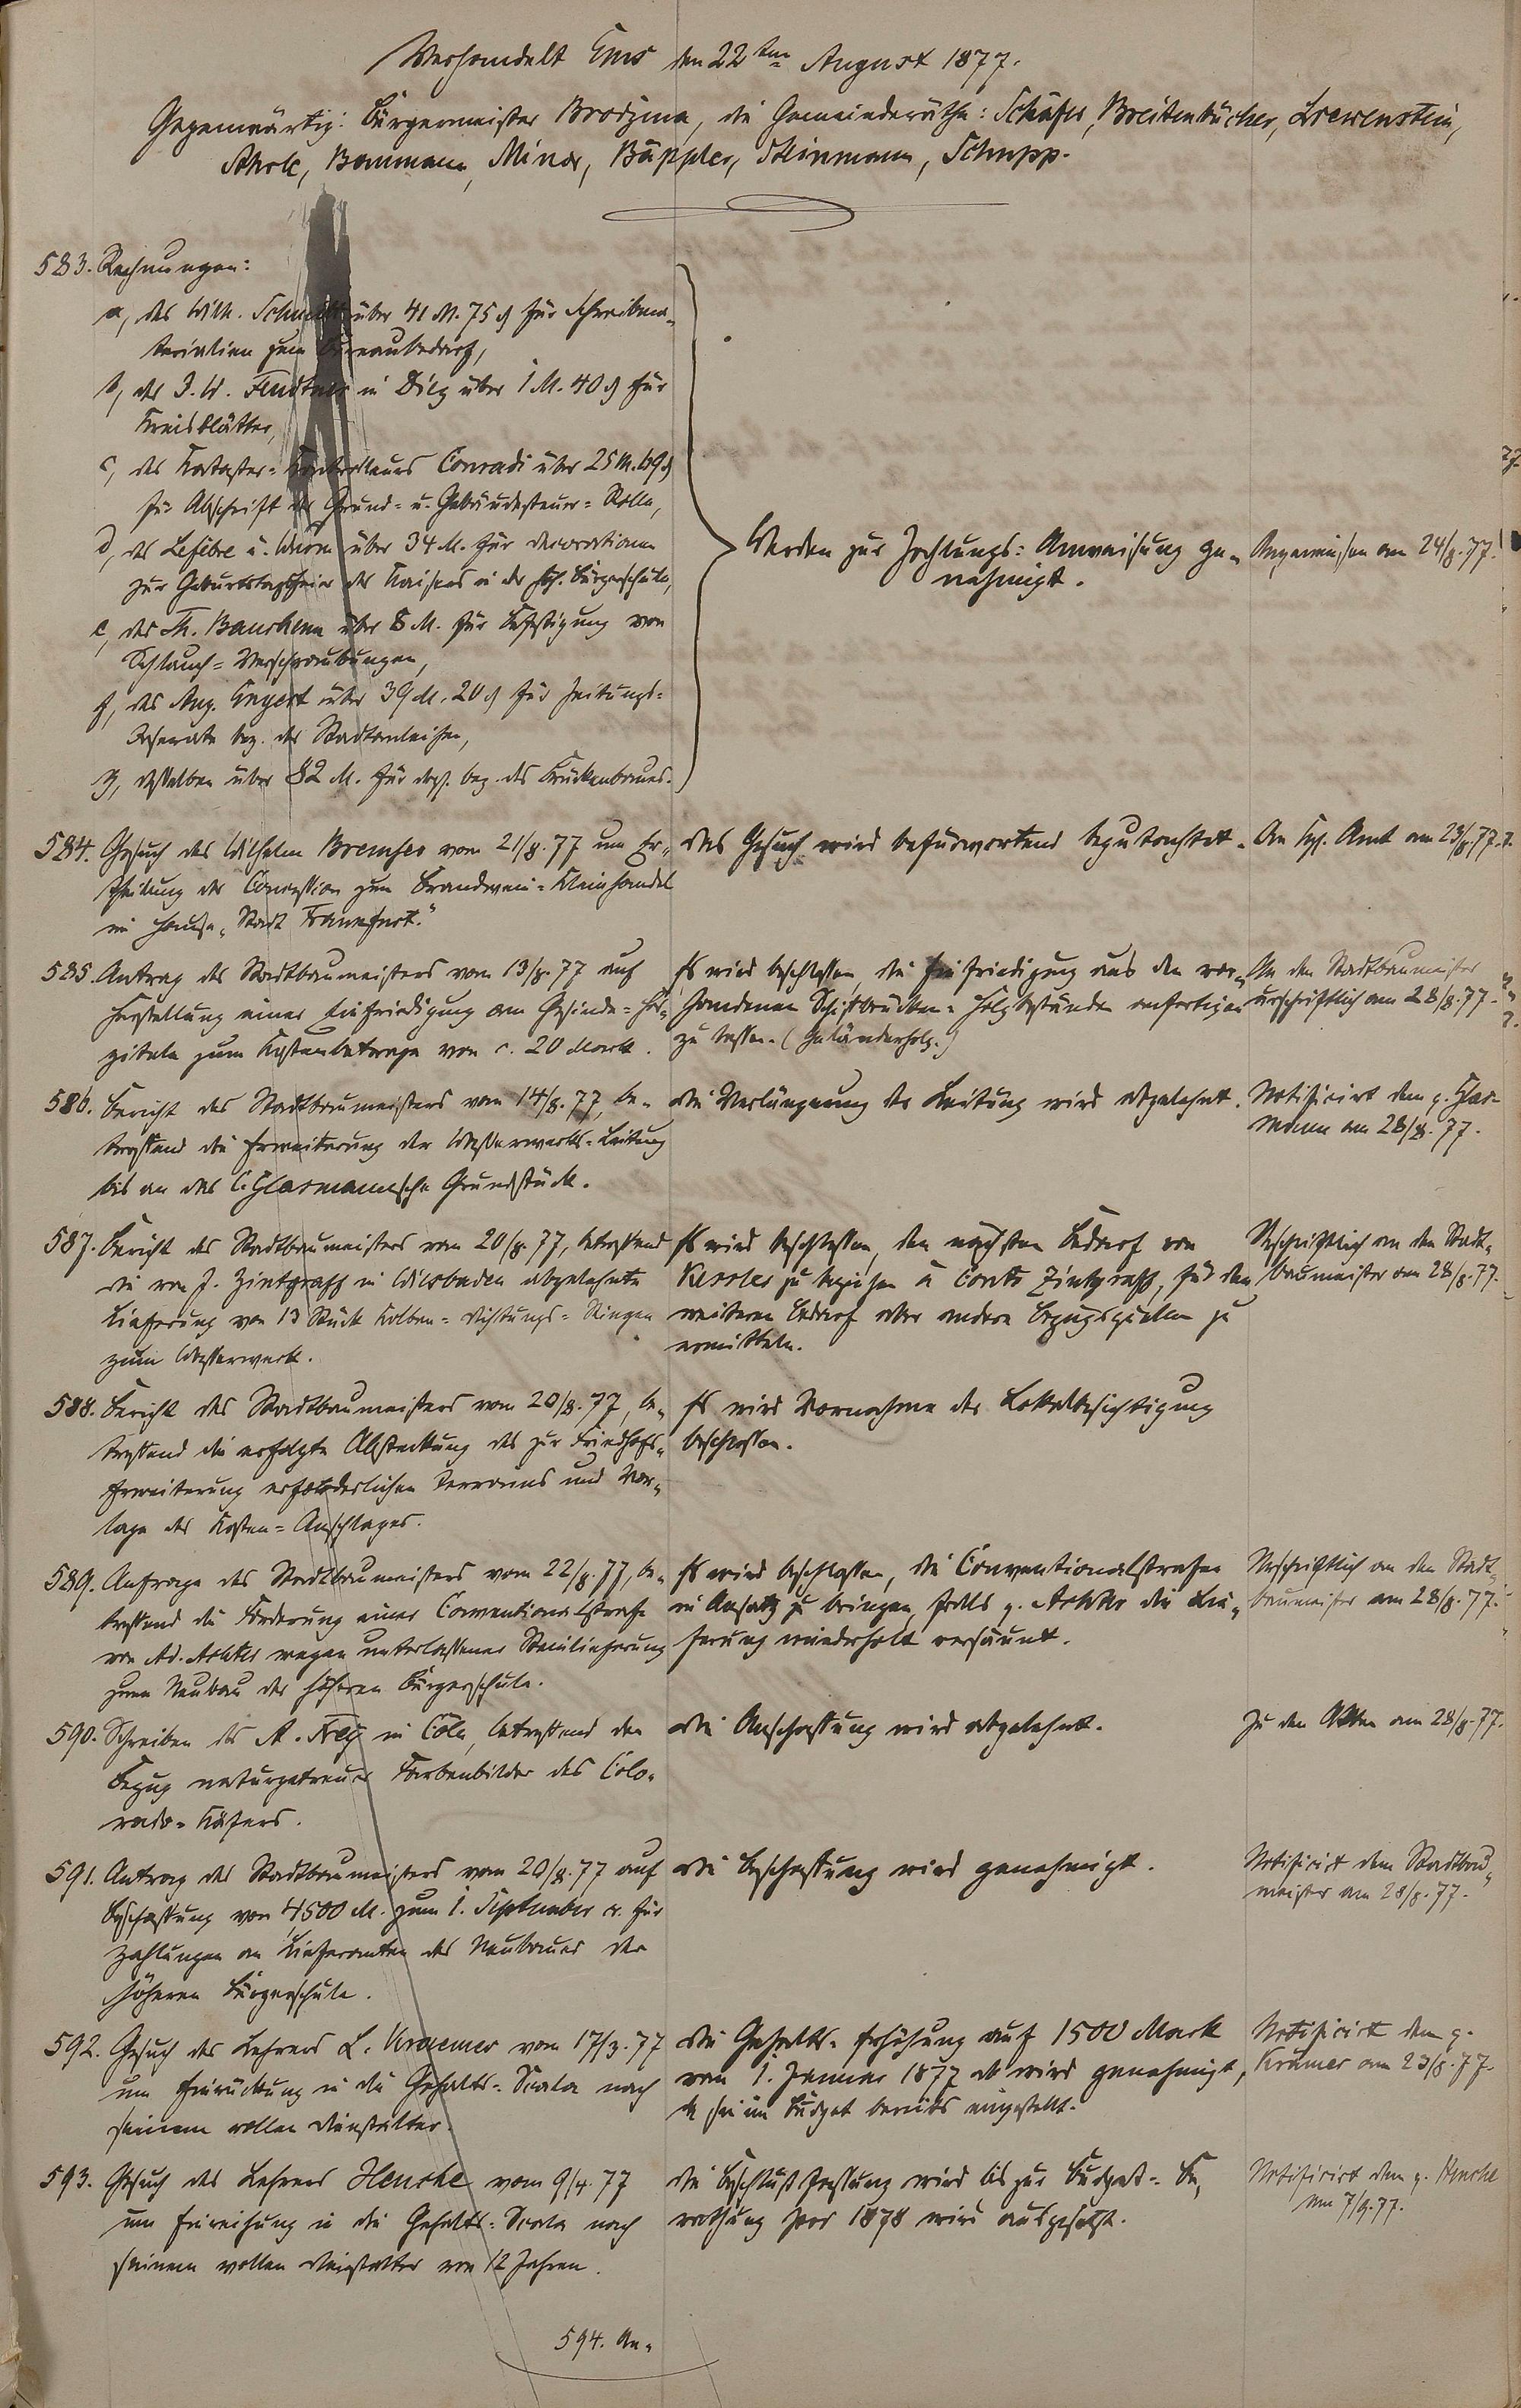 Verhandelt Ems den 22ten August 1877.
Gegenwärtig: Bürgermeister Brodzina, die Gemeinderäthe: Schäfer, Breitenbücher, Loewenstein,
Baumann, Minor, Bäppler, Steinmann, Schupp.
583. Rechnungen:
a, des Wilh. Schmidt über 41 M. 75 ₰ für Schreibma-
terialien zum Bureaubedarf,
b, der J. W. in Diez über 1 M. 40 ₰ für
Kreisblätter,
c, des Kataster-Kontroleurs Conradi über 25 M. 69 ₰
für Abschrift der Grund- u. Gebäudesteuer-Rolle,
d, des Lefèbre u. über 34 M. für Decorationen
zur Geburtstagsfeier des Kaisers in der höh. Bürgerschule,
e, des Th. über 8 M. für Befestigung von
Schlauch-Verschraubungen,
f, des Aug. über 39 M. 20 ₰ für Zeitungs-
Inserate bez. der Stadtanleihen,
g, desselben über 82 M. für desgl. bez. des Brückenbaues.
Werden zur Zahlungs-Anweisung ge-
nehmigt.
Angewiesen am 24/8. 77.
584. Gesuch des Wilhelm Bremser vom 21/8. 77 um Er-
theilung der Concession zum Brandwein-Kleinhandel
im Hause „Stadt Frankfurt."
Das Gesuch wird befürwortend begutachtet.
An Kgl. Amt am 23/8. 77.
585. Antrag des Stadtbaumeisters vom 13/8. 77 auf
Herstellung einer Einfriedigung am Gesinde-Hos-
pitale zum Kostenbetrage von c. 20 Mark.
Es wird beschlossen, die Einfriedigung aus den vor-
handenen Schiffbrücken-Holzbeständen anfertigen
zu lassen. (Geländerholz.)
An den Stadtbaumeister
urschriftlich am 28/8. 77.
586. Bericht des Stadtbaumeisters vom 14/8. 77, be-
treffend die Erweiterung der Wasserwerks-Leitung
bis an das C. Glasmannsche Grundstück.
Die Verlängerung der Leitung wird abgelehnt.
Notificirt dem p. Glas-
mann am 28/8. 77.
587. Bericht des Stadtbaumeisters vom 20/8. 77, betreffend
die von J. Zintgraff in Wiesbaden abgelehnte
Lieferung von 13 Stück Kolben-Dichtungs-Ringen
zum Wasserwerk.
Es wird beschlossen, den nächsten Bedarf von
Kessler zu beziehen à Conto Zintgraff, für den
weiteren Bedarf aber andere Bezugsquellen zu
ermitteln.
Urschriftlich an den Stadt-
baumeister am 28/8. 77.
588. Bericht des Stadtbaumeisters vom 20/8. 77, be-
treffend die erfolgte Absteckung des zur Friedhofs-
Erweiterung erforderlichen Terrains und Vor-
lage des Kosten-Anschlages.
Es wird Vornahme der Lokalbesichtigung
beschlossen.
589. Anfrage des Stadtbaumeisters vom 22/8. 77, be-
treffend die Forderung einer Conventionalstrafe
von Ad. wegen unterlassener Steinlieferung
zum Neubau der höheren Bürgerschule.
Es wird beschlossen, die Conventionalstrafe
in Ansatz zu bringen, falls p. die Lie-
ferung wiederholt versäumt.
Urschriftlich an den Stadt-
baumeister am 28/8. 77.
590. Schreiben des A. Frey in Cöln, betreffend den
Bezug naturgetreuer Farbenbilder des Colo-
rado-Käfers.
Die Anschaffung wird abgelehnt.
Zu den Akten am 28/8. 77.
591. Antrag des Stadtbaumeisters vom 20/8. 77 auf
Beschaffung von 4500 M. zum 1. September cr. für
Zahlungen an Lieferanten des Neubaues der
höheren Bürgerschule.
Die Beschaffung wird genehmigt.
Notificirt dem Stadtbau-
meister am 28/8. 77.
592. Gesuch des Lehrers L. Kraemer vom 17/3. 77
um Einrückung in die Gehalts-Scala nach
seinem vollen Dienstalter.
Die Gehalts-Erhöhung auf 1500 Mark
vom 1. Januar 1877 ab wird genehmigt,
da sie im Budget bereits eingestellt.
Notificirt dem p.
Krämer am 23/8. 77.
593. Gesuch des Lehrers Henche vom 9/4. 77
um Einreihung in die Gehalts-Scala nach
seinem vollen Dienstalter von 12 Jahren.
Die Beschlußfassung wird bis zur Budget-Be-
rathung pro 1878 wird ausgesetzt.
Notificirt dem p. Henche
am 7/9. 77.
594. An-